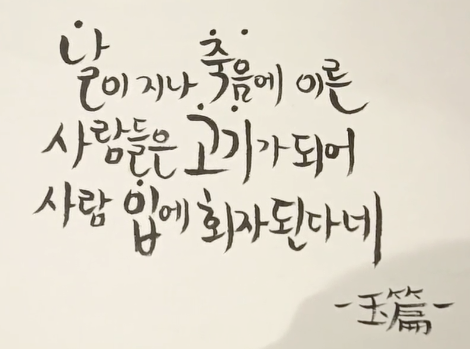 날이 지나 죽음에 이른
사람들은 고기가 되어
사람 입에 회자된다네
-玉篇-